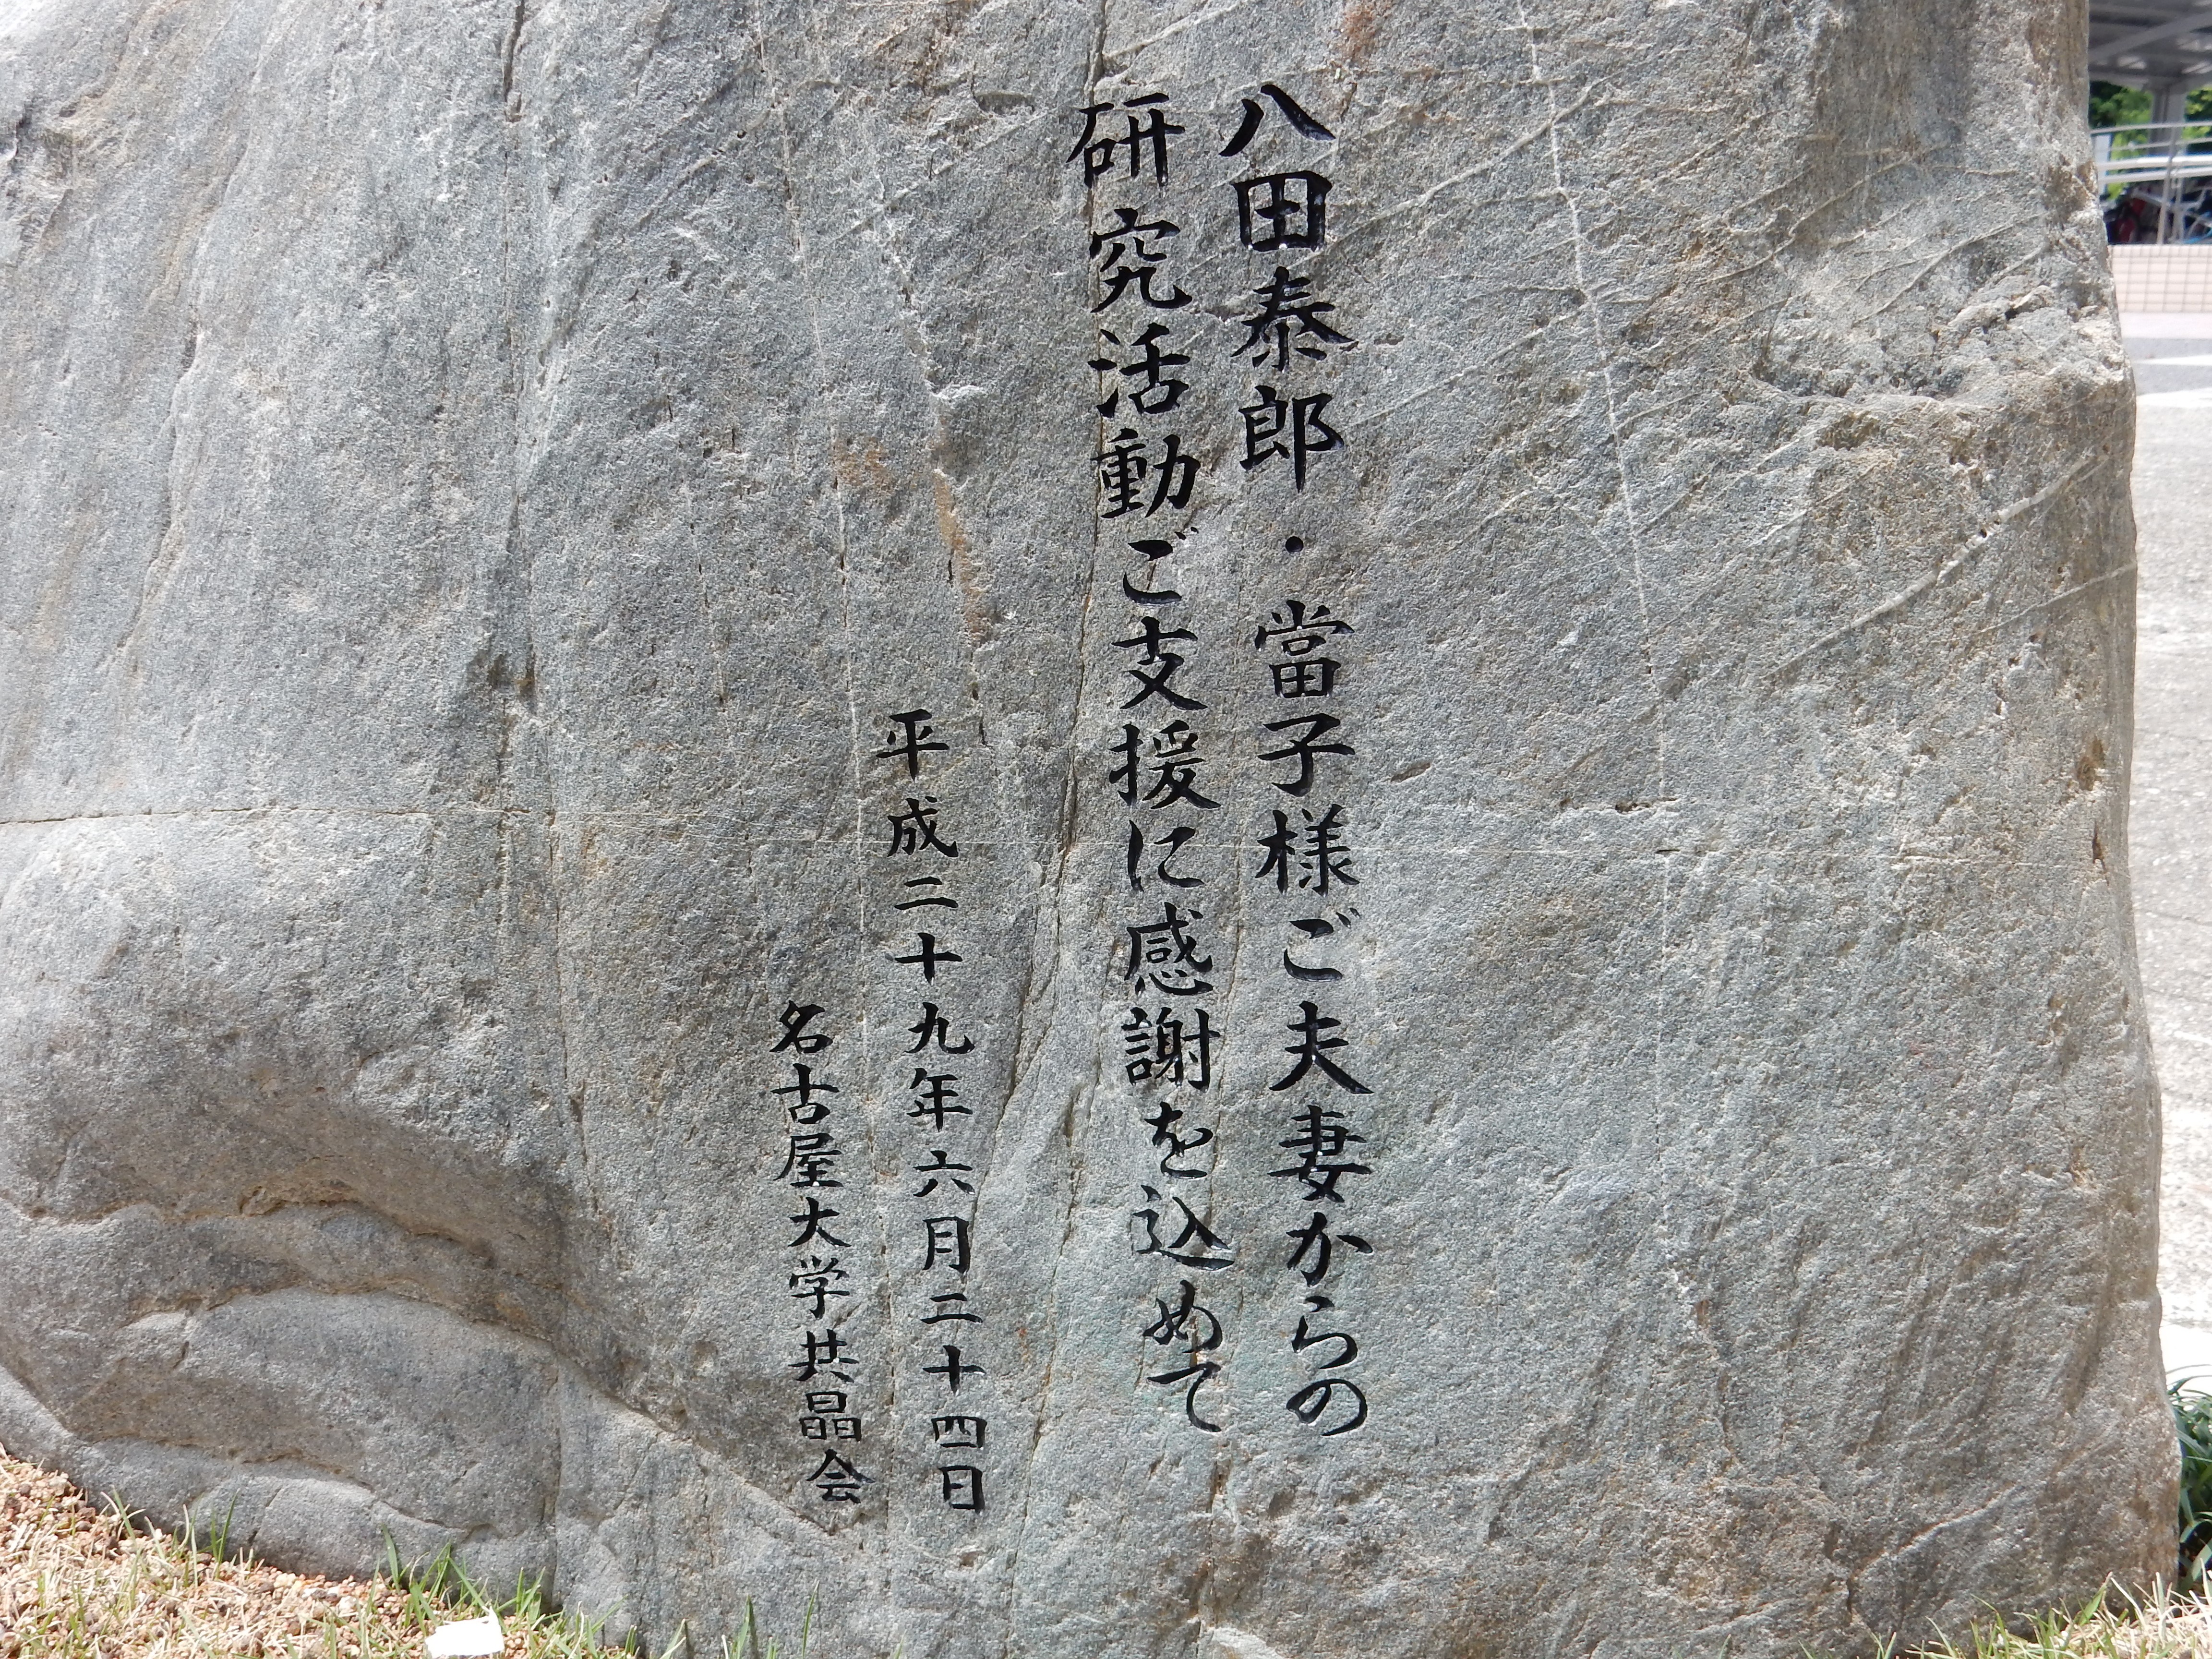 八田泰郎・當子様ご夫妻からの
研究活動ご支援に感謝を込めて
平成二十九年六月二十四日
名古屋大学共晶会